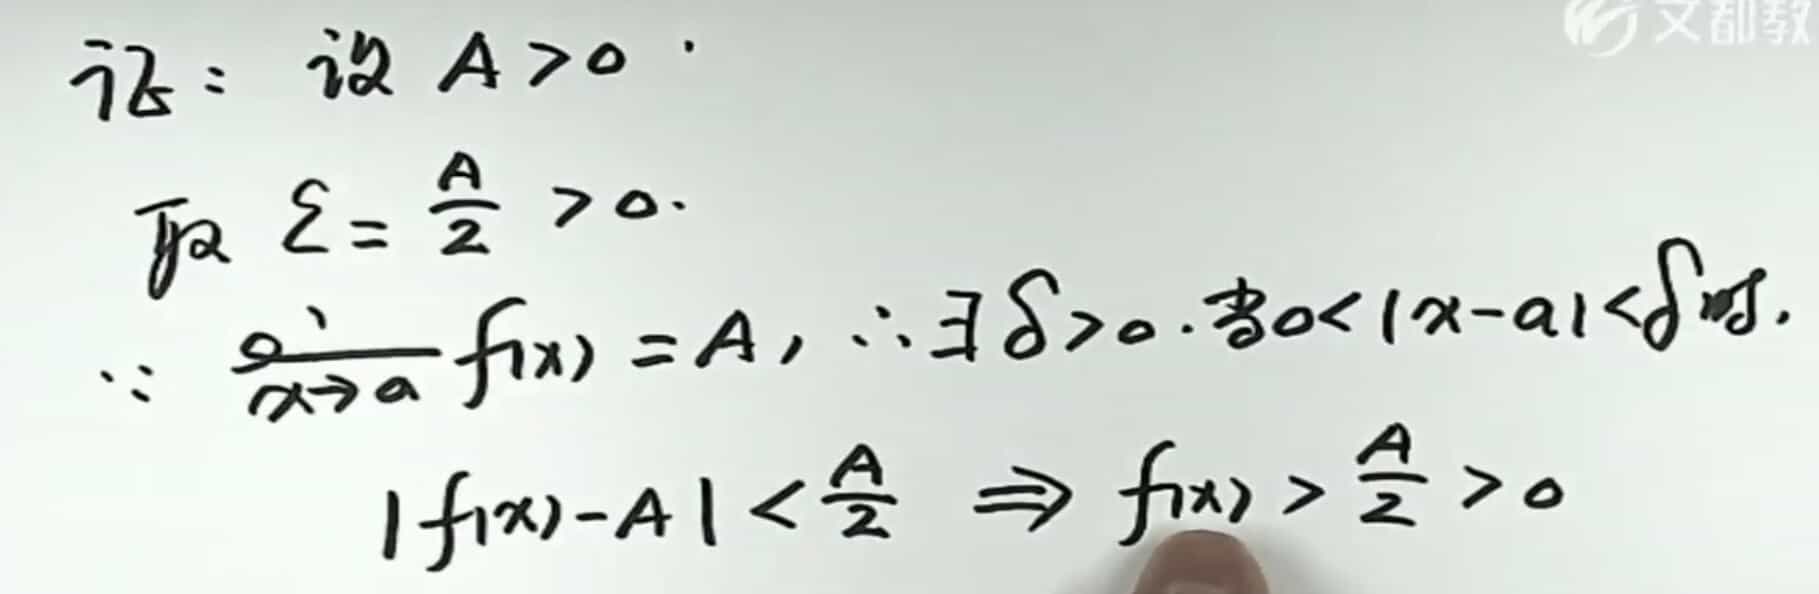 文都教
证: 设 A>0.
取 ε = A/2 >0.
∵ lim x→a f(x) = A, ∴ ∃ δ>0. 当0<|x-a|<δ时,
|f(x)-A| < A/2 ⇒ f(x) > A/2 > 0